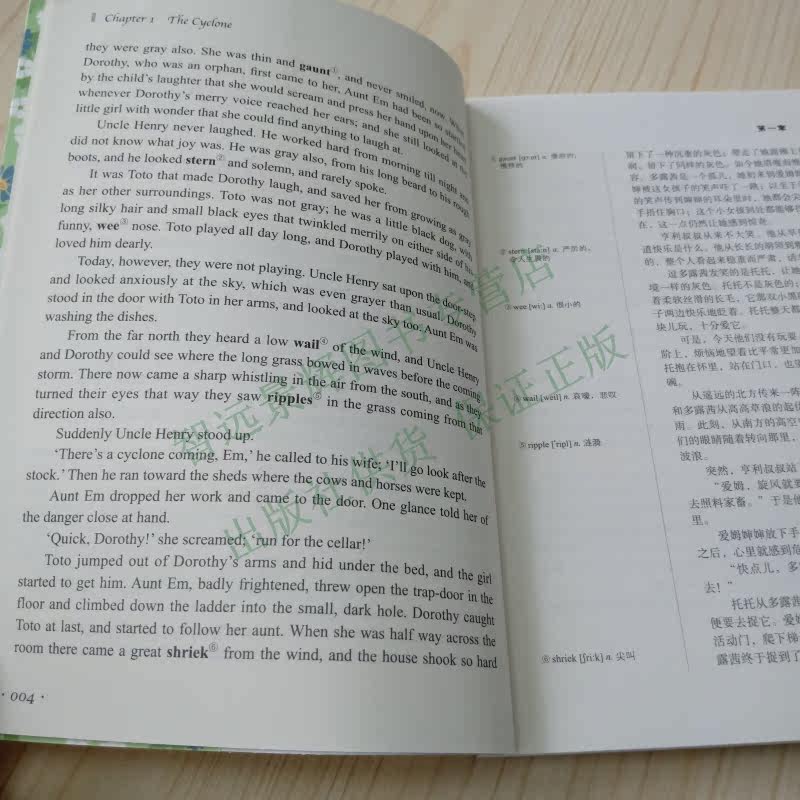 Chapter 1 The Cyclone
they were gray also. She was thin and gaunt①, and never smiled, now. When
Dorothy, who was an orphan, first came to her, Aunt Em had been so startled
by the child's laughter that she would scream and press her hand upon her heart
whenever Dorothy's merry voice reached her ears; and she still looked at the
little girl with wonder that she could find anything to laugh at.
Uncle Henry never laughed. He worked hard from morning till night and
did not know what joy was. He was gray also, from his long beard to his rough
boots, and he looked stern② and solemn, and rarely spoke.
It was Toto that made Dorothy laugh, and saved her from growing as gray
as her other surroundings. Toto was not gray; he was a little black dog, with
long silky hair and small black eyes that twinkled merrily on either side of his
funny, wee③ nose. Toto played all day long, and Dorothy played with him, and
loved him dearly.
Today, however, they were not playing. Uncle Henry sat upon the door-step
and looked anxiously at the sky, which was even grayer than usual. Dorothy
stood in the door with Toto in her arms, and looked at the sky too. Aunt Em was
washing the dishes.
From the far north they heard a low wail④ of the wind, and Uncle Henry
and Dorothy could see where the long grass bowed in waves before the coming
storm. There now came a sharp whistling in the air from the south, and as they
turned their eyes that way they saw ripples⑤ in the grass coming from that
direction also.
Suddenly Uncle Henry stood up.
‘There's a cyclone coming, Em,’ he called to his wife; ‘I'll go look after the
stock.’ Then he ran toward the sheds where the cows and horses were kept.
Aunt Em dropped her work and came to the door. One glance told her of
the danger close at hand.
‘Quick, Dorothy!’ she screamed; ‘run for the cellar!’
Toto jumped out of Dorothy's arms and hid under the bed, and the girl
started to get him. Aunt Em, badly frightened, threw open the trap-door in the
floor and climbed down the ladder into the small, dark hole. Dorothy caught
Toto at last, and started to follow her aunt. When she was half way across the
room there came a great shriek⑥ from the wind, and the house shook so hard
· 004 ·
第一章
① gaunt [gɔ:nt] a. 憔悴的,
② stern [stə:n] a. 严厉的,
令人生畏的
③ wee [wi:] a. 很小的
④ wail [weil] n. 哀嚎, 悲叹
⑤ ripple ['ripl] n. 涟漪
⑥ shriek [ʃri:k] n. 尖叫
留下了一种沉重的灰色; 带走了她露
润, 留下了同样的灰色。如今她消瘦
容。多露茜是一个孤儿, 她初来到爱姆
婶被这女孩子的笑声吓了一跳; 以至于
的笑声传到婶婶的耳朵里时, 她都会尖
手捂住胸口; 这个小女孩到处都能够
在, 这一点仍然让她感到惊
亨利叔叔从来不大笑。他从早
道快乐是什么。他从长长的胡须到
的, 整个人看起来稳重而严肃, 话
逗多露茜发笑的是托托, 让她
境一样的灰色。托托不是灰色的;
着柔软丝滑的长毛, 它那双小黑
子两边快乐地眨着。托托整天都
块儿玩, 十分爱它。
可是, 今天他们没有玩耍。
阶上, 烦恼地望着比平常更加
托抱在怀里, 站在门口, 也
碗。
从遥远的北方传来一阵
和多露茜从高高草浪的起伏
雨。此刻, 从南方的高空
们的眼睛随着转向那里,
波浪。
突然, 亨利叔叔站
“爱姆, 旋风就要
去照料家畜。”于是他
里。
爱姆婶婶放下手
之后, 心里就感到危
“快点儿, 多
去!”
托托从多露茜
便要去捉它。爱姆
活动门, 爬下梯
露茜终于捉到了
智远景辉图书专营店
出版社供货 保证正版